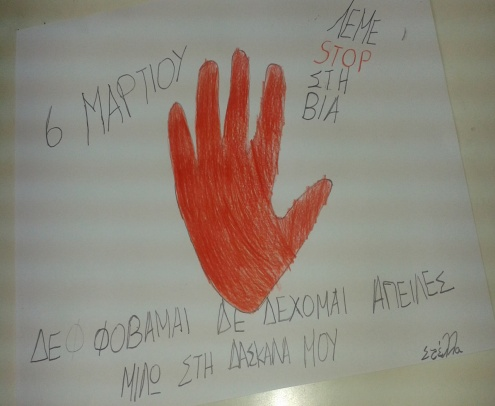 6 ΜΑΡΤΙΟΥ
ΛΕΜΕ
STOP
ΣΤΗ
ΒΙΑ
ΔΕ ΦΟΒΑΜΑΙ ΔΕ ΔΕΧΟΜΑΙ ΑΠΕΙΛΕΣ
ΜΙΛΩ ΣΤΗ ΔΑΣΚΑΛΑ ΜΟΥ
Στέλλα